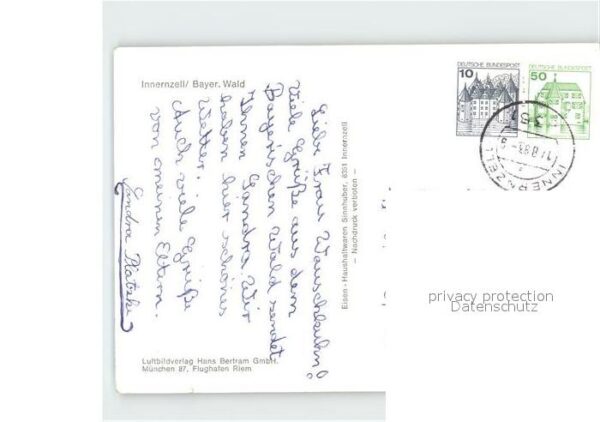 Innernzell/ Bayer. Wald
Liebe Frau
Viele Grüße aus dem
Bayerischen Wald sendet
Ihnen Sandra. Wir
haben hier schönes
Wetter.
Auch viele Grüße
von meinen Eltern.
Sandra
Luftbildverlag Hans Bertram GmbH.
München 87, Flughafen Riem
Eisen - Haushaltwaren Sinnhuber, 8351 Innernzell
– Nachdruck verboten –
DEUTSCHE BUNDESPOST
10
DEUTSCHE BUNDESPOST
50
INNERNZELL
privacy protection
Datenschutz